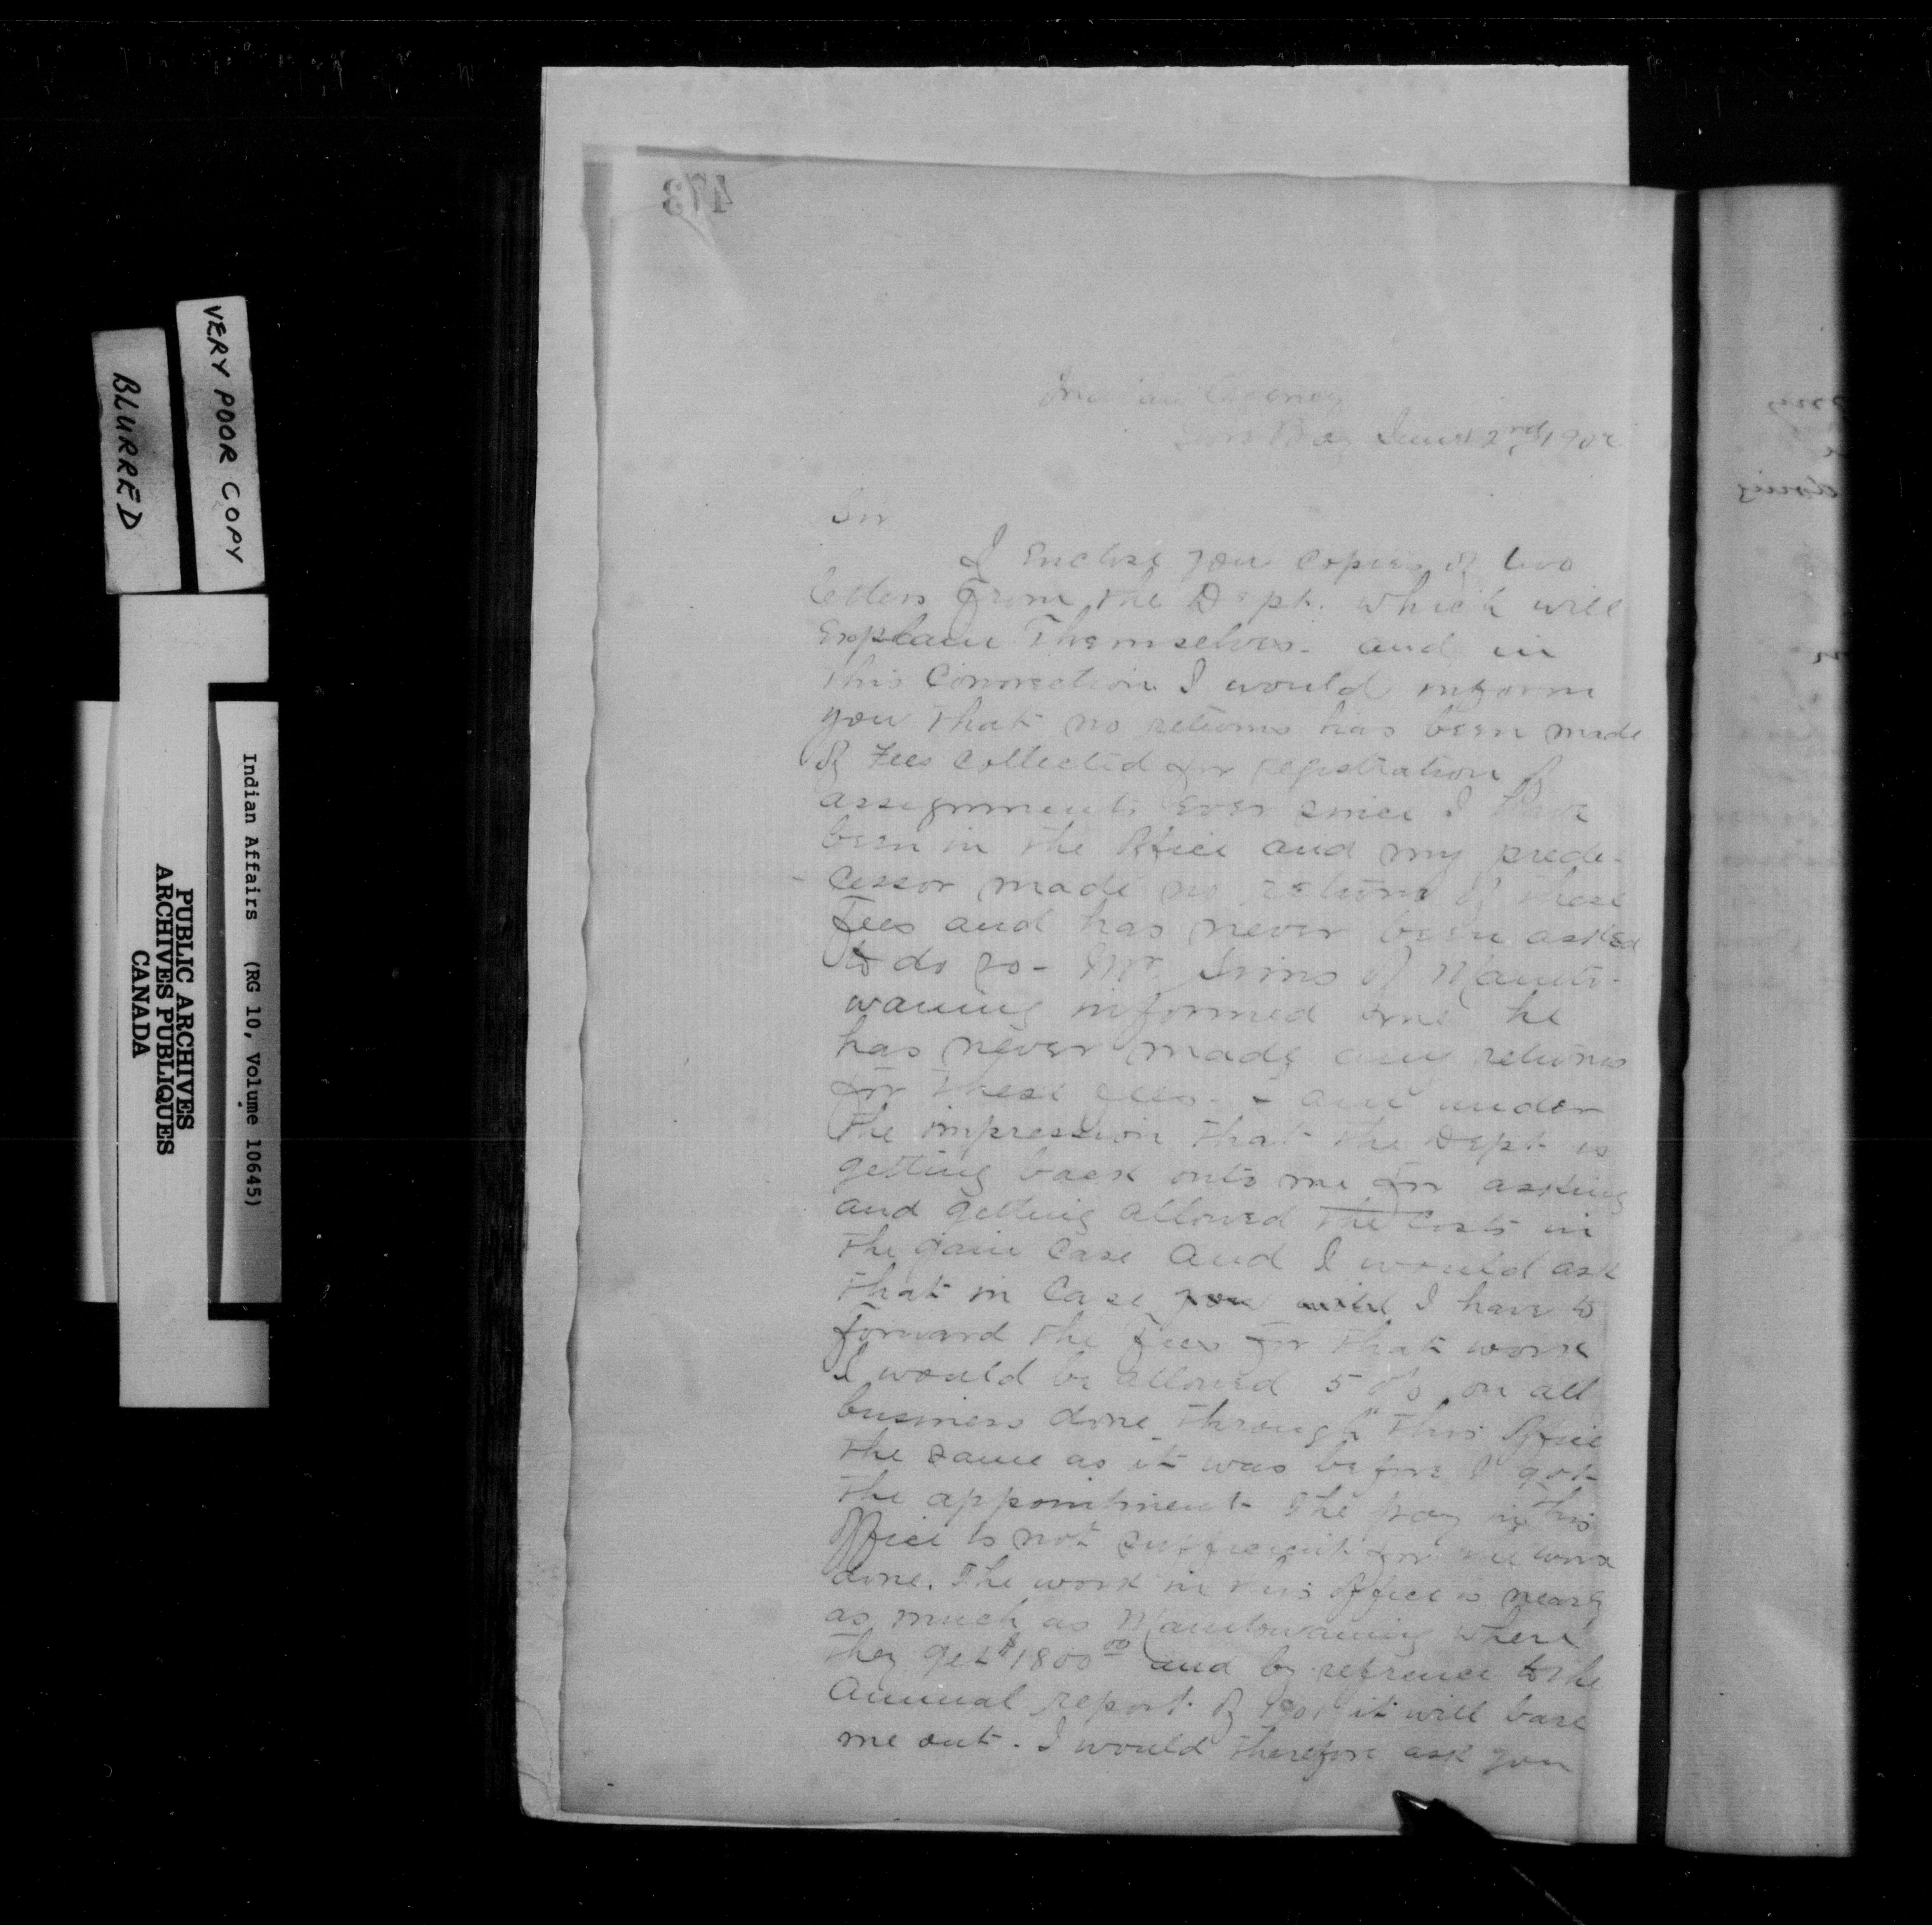 VERY POOR COPY
BLURRED
Indian Affairs (RG 10, Volume 10645)
PUBLIC ARCHIVES
ARCHIVES PUBLIQUES
CANADA
473
Indian Agency
Gore Bay June 2nd 1902
Sir
I Enclose you Copies of two
letters From the Dept. which will
Explain Themselves. and in
this Connection I would inform
you that no returns has been made
of Fees Collected for registration of
assignments Ever since I have
been in the Office and my prede-
cessor made no returns of these
Fees and has never been asked
to do so - Mr. Sims of Manito-
waning informed me he
has never made any returns
for these fees. I am under
the impression that the Dept is
getting back onto me for asking
and getting allowed the Costs in
the Case and I would ask
that in Case I have to
forward the Fees for that work
I would be allowed 5 % on all
business done through this Office
the same as it was before I got
the appointment. The pay in this
Office is not sufficient for the work
done. The work in this Office is nearly
as much as Manitowaning where
they get $1800.00 and by refrence to the
Annual report of 1901 it will bare
me out. I would therefore ask you
any
doing